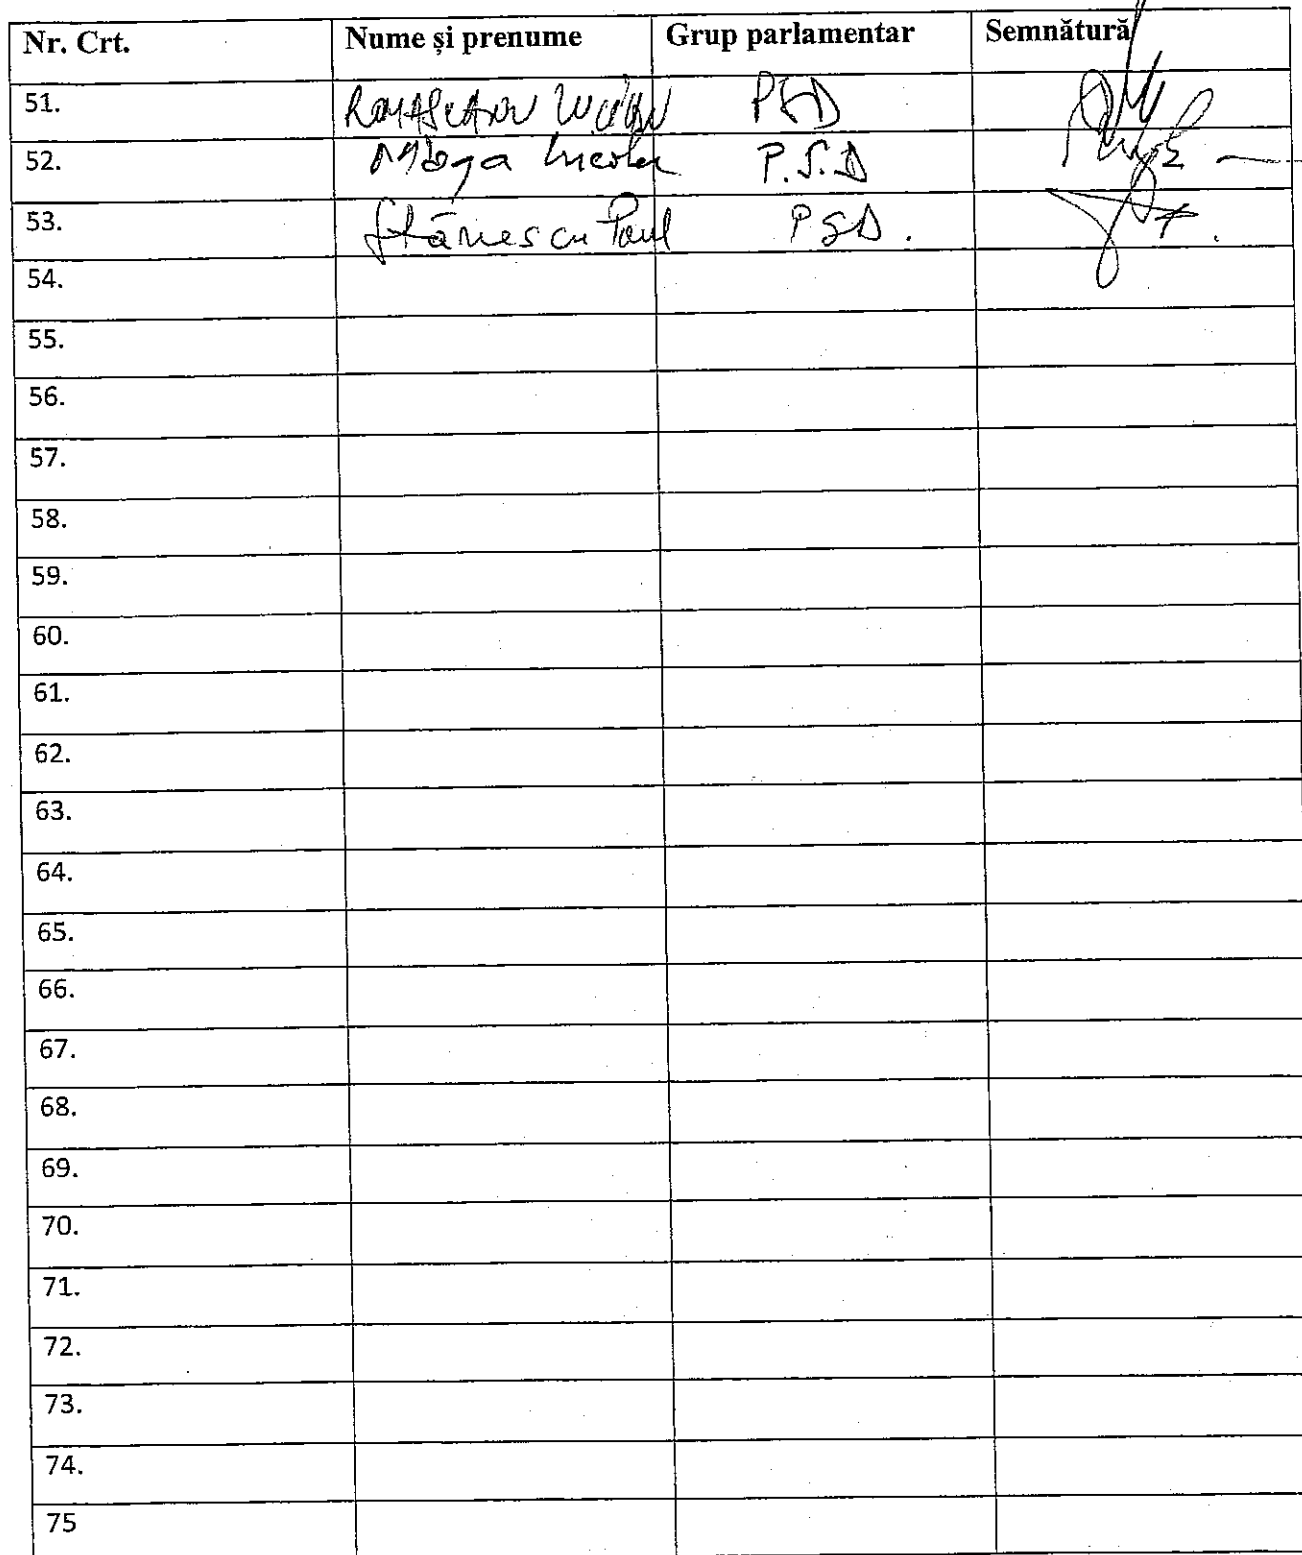 Nr. Crt. Nume și prenume Grup parlamentar Semnătură
51. PSD
52. Moga Nicolae P.S.D
53. Stănescu Paul PSD.
54.
55.
56.
57.
58.
59.
60.
61.
62.
63.
64.
65.
66.
67.
68.
69.
70.
71.
72.
73.
74.
75